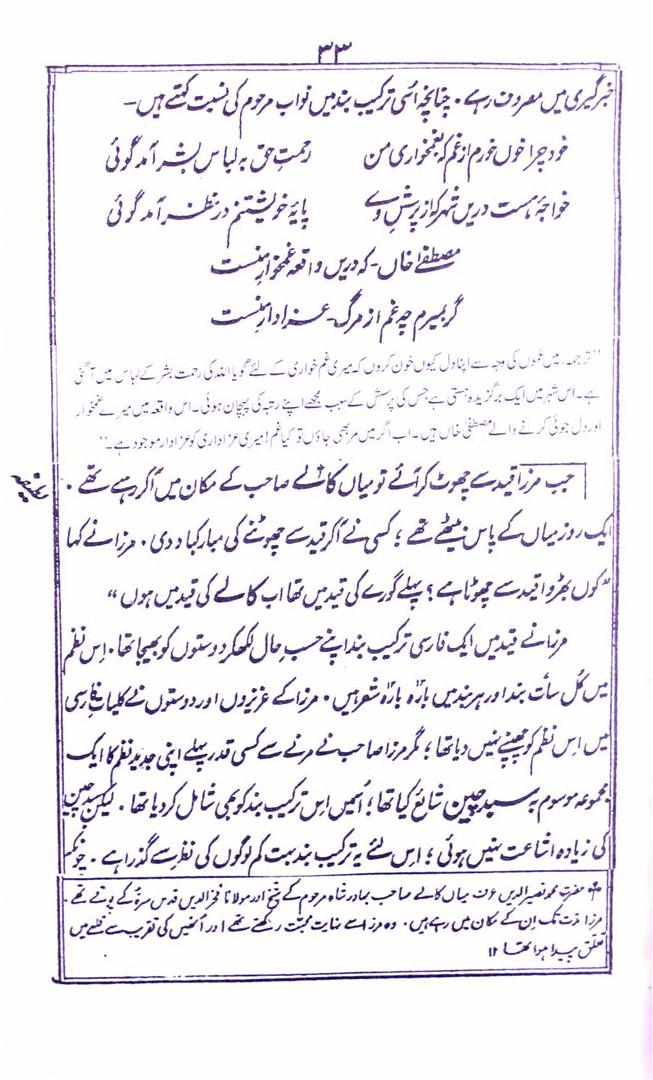 ۳۳
خبرگیری میں مصروف رہے۔ چنانچہ اسی ترکیب بند میں نواب مرحوم کی نسبت کہتے ہیں۔
خود چرا خوں خورم از غم کہ بغمخواری من رحمتِ حق بہ لباسِ بشر آمد گوئی
خواجۂ ہست دریں شہر کہ از پرسشِ وے پایۂ خویشتنم در نظر آمد گوئی
مصطفےٰ خاں۔ کہ دریں واقعہ غمخوارِ منست
گر بمیرم چہ غم از مرگ۔ عزادار منست
"ترجمہ۔ میں غموں کی وجہ سے اپنا دل کیوں خون کروں کہ میری غم خواری کے لئے گویا اللہ کی رحمت بشر کے لباس میں آگئی
ہے۔ اس شہر میں ایک برگزیدہ ہستی ہے جس کی پرسش کے سبب مجھے اپنے رتبہ کی پہچان ہوئی۔ اس واقعہ میں میرے غمخوار
اور دل جوئی کرنے والے مصطفیٰ خاں ہیں۔ اب اگر میں مر بھی جاؤں تو کیا غم! میری عزاداری کو عزادار موجود ہے۔"
لطیفہ
جب مرزا قید سے چھوٹ کر آئے تو میاں کالے صاحب کے مکان میں آکر رہے تھے۔
ایک روز میاں کے پاس بیٹھے تھے؛ کسی نے آکر قید سے چھوٹنے کی مبارکباد دی۔ مرزا نے کہا
"کون بھڑوا قید سے چھوٹا ہے؟ پہلے گورے کی قید میں تھا اب کالے کی قید میں ہوں"
مرزا نے قید میں ایک فارسی ترکیب بند اپنے حسبِ حال لکھکر دوستوں کو بھیجا تھا۔ اِس نظم
میں کُل سات بند اور ہر بند میں بارہ بارہ شعر ہیں۔ مرزا کے عزیزوں اور دوستوں نے کلیاتِ فارسی
میں اِس نظم کو چھپنے نہیں دیا تھا؛ مگر مرزا صاحب نے مرنے سے کسی قدر پہلے اپنی جدید نظم کا ایک
مجموعہ موسوم بہ سبد چین شائع کیا تھا؛ اُسمیں اِس ترکیب بند کو بھی شامل کر دیا تھا۔ لیکن سبد چین
کی زیادہ اشاعت نہیں ہوئی؛ اِس لئے یہ ترکیب بند بہت کم لوگوں کی نظر سے گذرا ہے۔ چونکہ
حضرت محمد نصیر الدین عرف میاں کالے صاحب بہادر شاہ مرحوم کے شیخ اور مولانا فخر الدین قدس سرہٗ کے پوتے تھے۔
مرزا مدت تک اِن کے مکان میں رہے ہیں۔ وہ مرزا سے نہایت محبت رکھتے تھے اور اُنھیں کی تقریب سے قلعے میں
تعلق پیدا ہوا تھا ۱۲